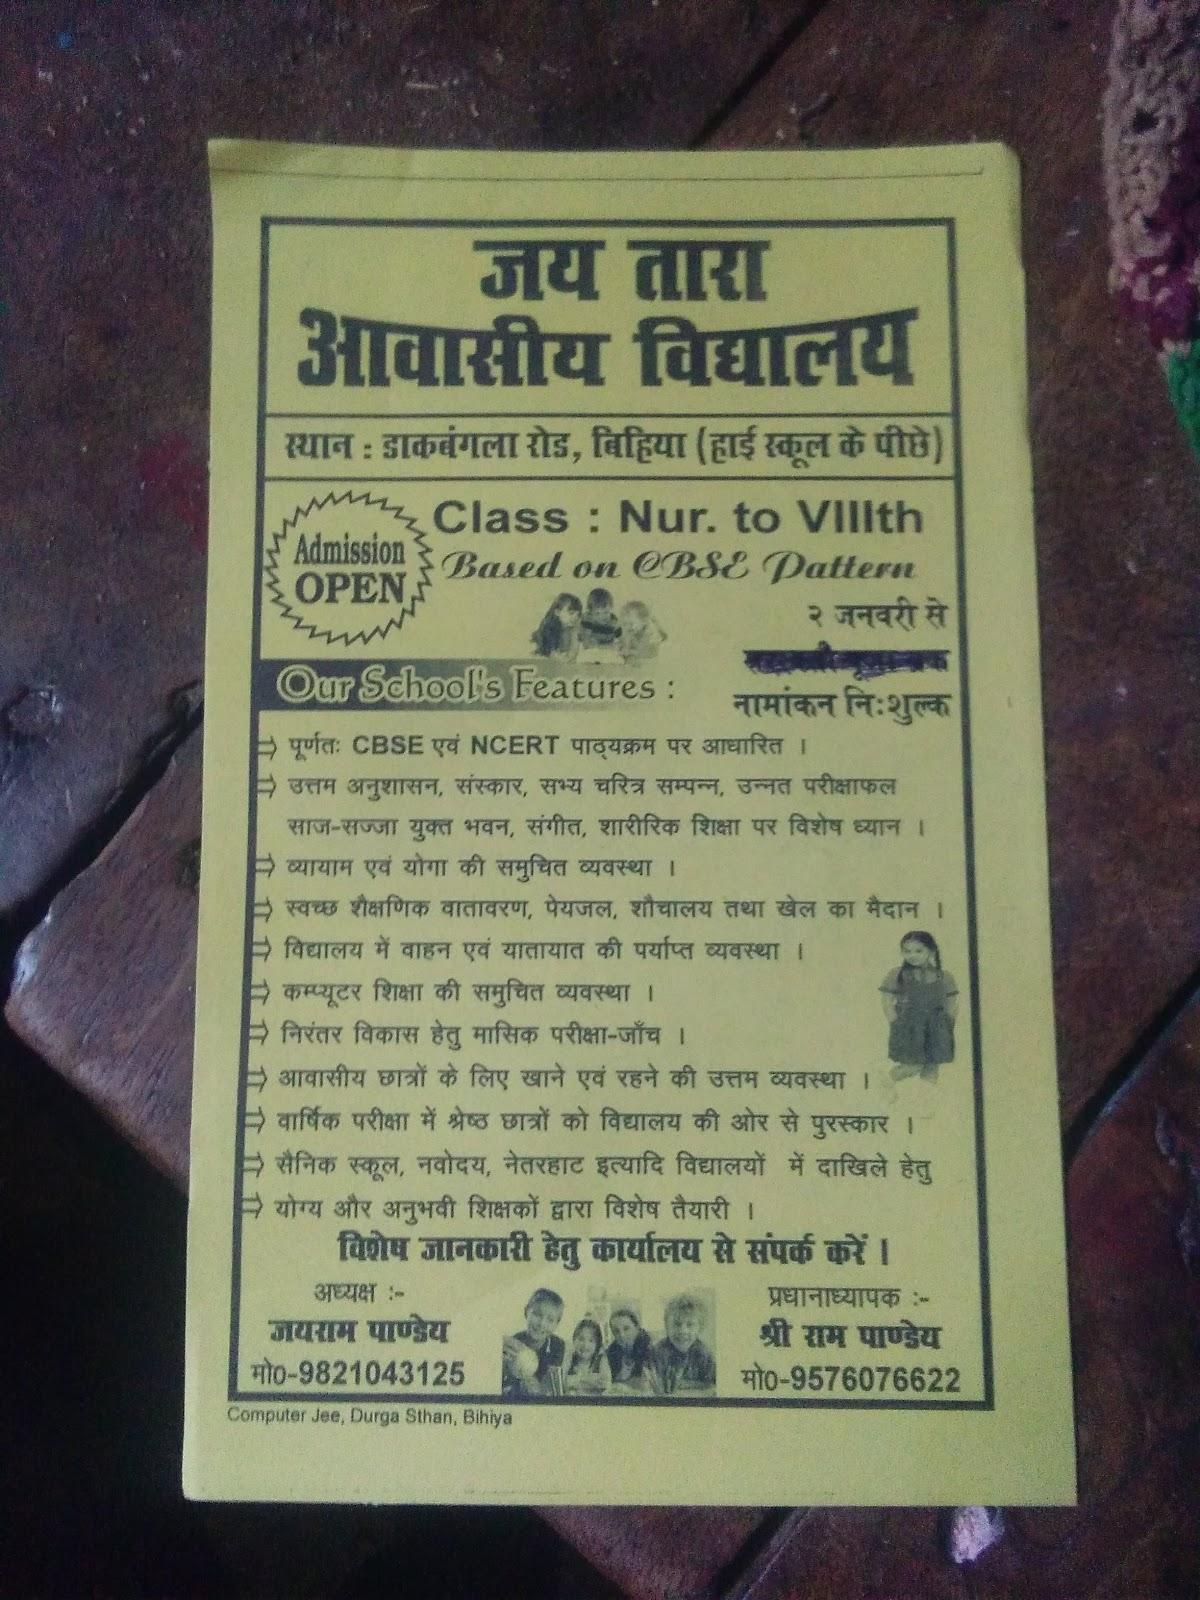 जय तारा
आवासीय विद्यालय
स्थान : डाकबंगला रोड, बिहिया (हाई स्कूल के पीछे)
Admission
OPEN
Class : Nur. to VIIIth
Based on CBSE Pattern
२ जनवरी से
नामांकन निःशुल्क
Our School's Features :
⇒ पूर्णतः CBSE एवं NCERT पाठ्यक्रम पर आधारित ।
⇒ उत्तम अनुशासन, संस्कार, सभ्य चरित्र सम्पन्न, उन्नत परीक्षाफल
साज-सज्जा युक्त भवन, संगीत, शारीरिक शिक्षा पर विशेष ध्यान ।
⇒ व्यायाम एवं योगा की समुचित व्यवस्था ।
⇒ स्वच्छ शैक्षणिक वातावरण, पेयजल, शौचालय तथा खेल का मैदान ।
⇒ विद्यालय में वाहन एवं यातायात की पर्याप्त व्यवस्था ।
⇒ कम्प्यूटर शिक्षा की समुचित व्यवस्था ।
⇒ निरंतर विकास हेतु मासिक परीक्षा-जाँच ।
⇒ आवासीय छात्रों के लिए खाने एवं रहने की उत्तम व्यवस्था ।
⇒ वार्षिक परीक्षा में श्रेष्ठ छात्रों को विद्यालय की ओर से पुरस्कार ।
⇒ सैनिक स्कूल, नवोदय, नेतरहाट इत्यादि विद्यालयों में दाखिले हेतु
⇒ योग्य और अनुभवी शिक्षकों द्वारा विशेष तैयारी ।
विशेष जानकारी हेतु कार्यालय से संपर्क करें ।
अध्यक्ष :-
जयराम पाण्डेय
मो0-9821043125
प्रधानाध्यापक :-
श्री राम पाण्डेय
मो0-9576076622
Computer Jee, Durga Sthan, Bihiya